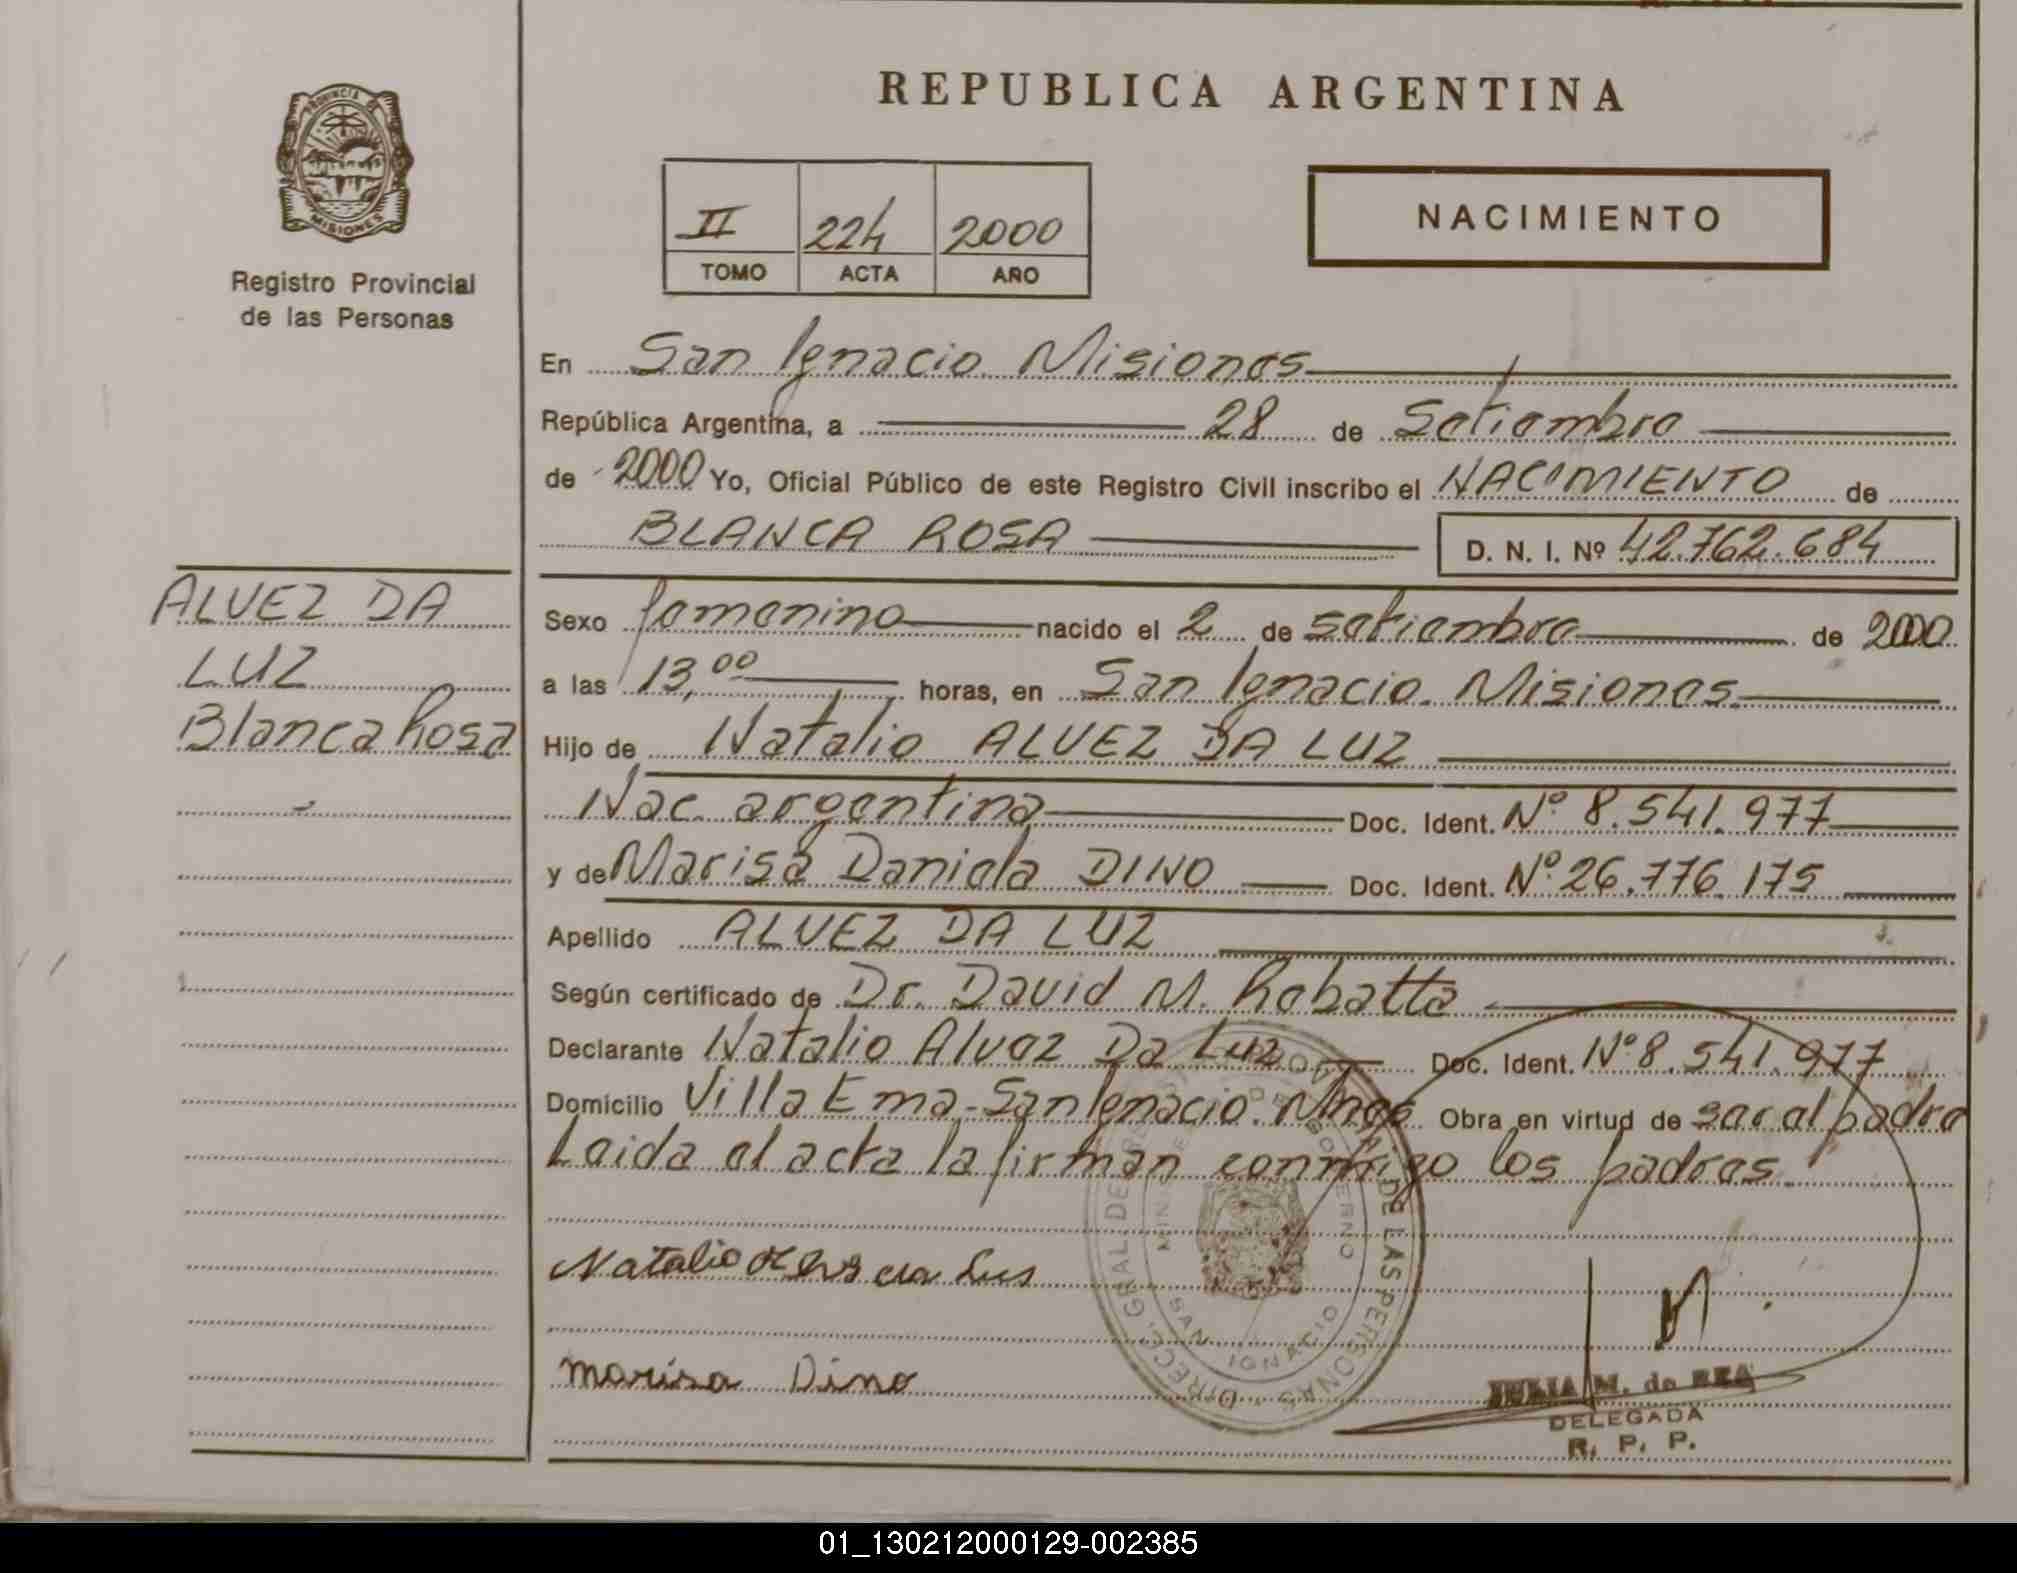 REPUBLICA ARGENTINA
PROVINCIA DE MISIONES
Registro Provincial
de las Personas
II 224 2000
TOMO ACTA AÑO
NACIMIENTO
En San Ignacio Misiones
República Argentina, a 28 de Setiembre
de 2000 Yo, Oficial Público de este Registro Civil inscribo el NACIMIENTO de
BLANCA ROSA D. N. I. Nº 42.762.684
ALVEZ DA
LUZ
Blanca Rosa
Sexo femenino nacido el 2 de setiembre de 2000
a las 13,00 horas, en San Ignacio. Misiones.
Hijo de Natalio ALVEZ DA LUZ
Nac. argentina Doc. Ident. Nº 8.541.977
y de Marisa Daniela DINO Doc. Ident. Nº 26.776.175
Apellido ALVEZ DA LUZ
Según certificado de Dr. David M. Robatta
Declarante Natalio Alvez Da Luz Doc. Ident. Nº 8.541.977
Domicilio Villa Ema-San Ignacio. Mnes Obra en virtud de ser el padre
Leida el acta la firman conmigo los padres.
Natalio da Lus
Marisa Dino
DE LAS PERSONAS
SAN IGNACIO
JULIA M. de REA
DELEGADA
R. P. P.
01_130212000129-002385